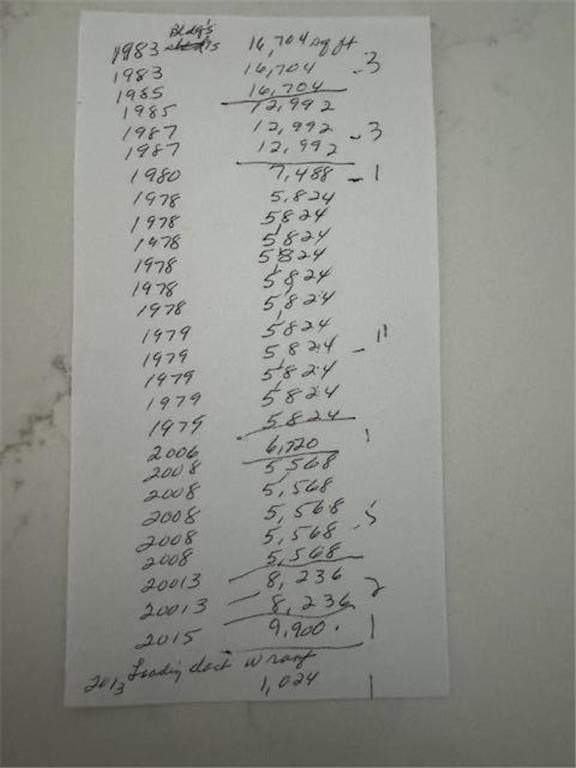 Bldg's
1983 16,704 sq ft
1983 16,704 - 3
1985 16,704
1985 12,992
1987 12,992 - 3
1987 12,992
1980 7,488 - 1
1978 5,824
1978 5824
1978 5,824
1978 5824
1978 5,824
1978 5,824
1979 5824
1979 5,824 - 11
1979 5,824
1979 5824
1979 5,824
2006 6,720 1
2008 5,568
2008 5,568
2008 5,568
2008 5,568 - 5
2008 5,568
20013 8,236
20013 8,236 2
2015 9,900. 1
2013 Loading dock w roof
1,024 1